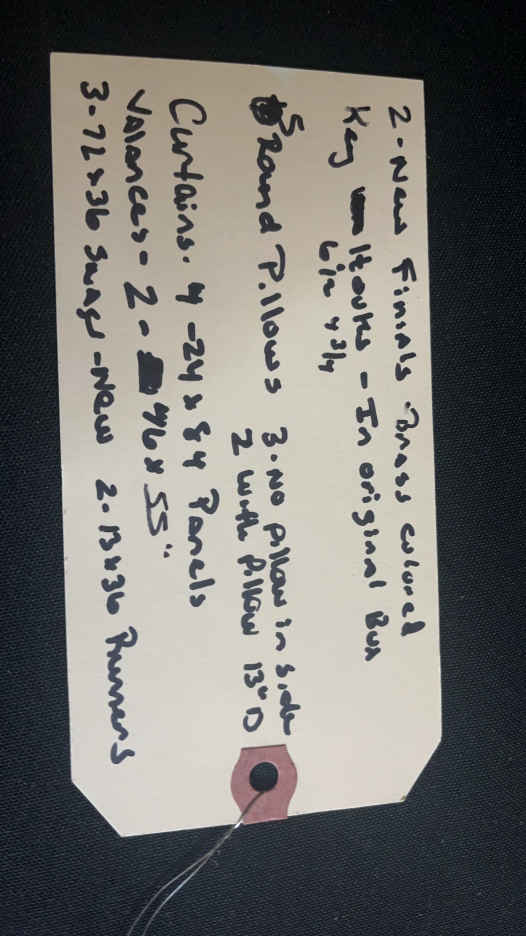 2-New Finials Brass colored
Key Hooks - In original Box
6 in x 3/4
5 Round Pillows 3-No pillow inside
2 with pillow 13" D
Curtains. 4-24x84 Panels
Valances- 2- 46x55"
3-72x36 Swags-New 2-13x36 Runners